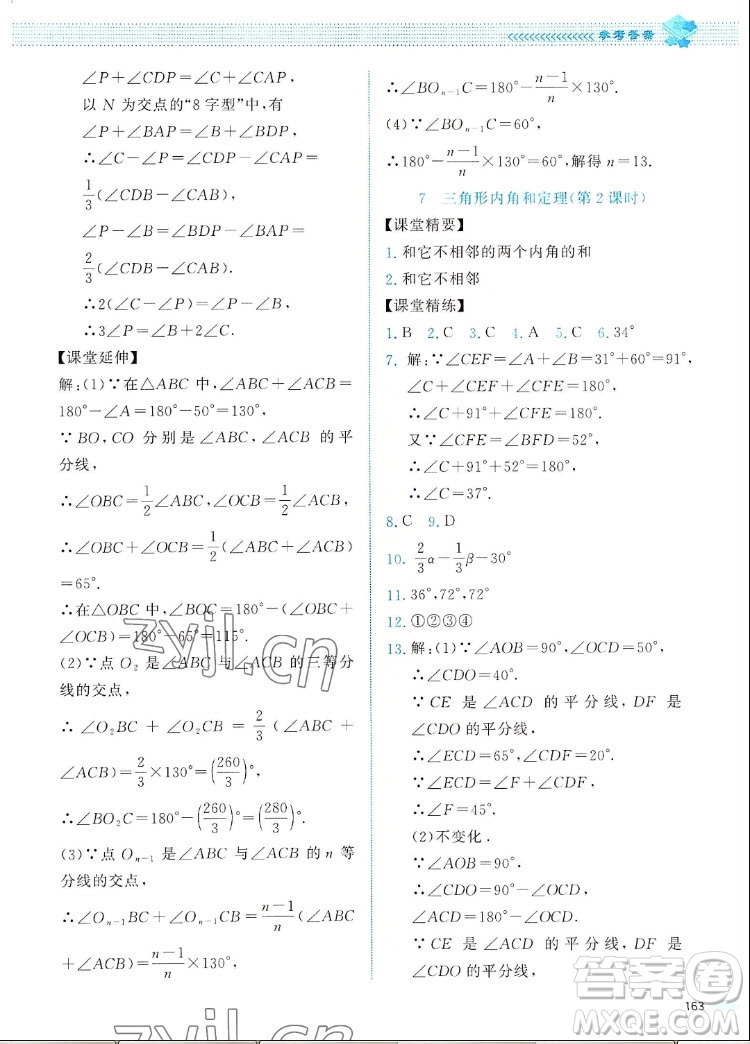 参考答案
∠P+∠CDP=∠C+∠CAP,
以 N 为交点的“8 字型”中,有
∠P+∠BAP=∠B+∠BDP,
∴∠C-∠P=∠CDP-∠CAP=
1/3(∠CDB-∠CAB),
∠P-∠B=∠BDP-∠BAP=
2/3(∠CDB-∠CAB).
∴2(∠C-∠P)=∠P-∠B,
∴3∠P=∠B+2∠C.
【课堂延伸】
解:(1)∵在△ABC 中,∠ABC+∠ACB=
180°-∠A=180°-50°=130°,
∵BO,CO 分别是∠ABC,∠ACB 的平
分线,
∴∠OBC=1/2∠ABC,∠OCB=1/2∠ACB,
∴∠OBC+∠OCB=1/2(∠ABC+∠ACB)
=65°.
∴在△OBC 中,∠BOC=180°-(∠OBC+
∠OCB)=180°-65°=115°.
(2)∵点 O₂ 是∠ABC 与∠ACB 的三等分
线的交点,
∴∠O₂BC+∠O₂CB=2/3(∠ABC+
∠ACB)=2/3×130°=(260/3)°,
∴∠BO₂C=180°-(260/3)°=(280/3)°.
(3)∵点 Oₙ₋₁ 是∠ABC 与∠ACB 的 n 等
分线的交点,
∴∠Oₙ₋₁BC+∠Oₙ₋₁CB=n-1/n(∠ABC
+∠ACB)=n-1/n×130°,
∴∠BOₙ₋₁C=180°-n-1/n×130°.
(4)∵∠BOₙ₋₁C=60°,
∴180°-n-1/n×130°=60°,解得 n=13.
7 三角形内角和定理(第 2 课时)
【课堂精要】
1. 和它不相邻的两个内角的和
2. 和它不相邻
【课堂精练】
1. B 2. C 3. C 4. A 5. C 6. 34°
7. 解:∵∠CEF=∠A+∠B=31°+60°=91°,
∠C+∠CEF+∠CFE=180°,
∴∠C+91°+∠CFE=180°.
又∵∠CFE=∠BFD=52°,
∴∠C+91°+52°=180°,
∴∠C=37°.
8. C 9. D
10. 2/3α-1/3β-30°
11. 36°,72°,72°
12. ①②③④
13. 解:(1)∵∠AOB=90°,∠OCD=50°,
∴∠CDO=40°.
∵CE 是∠ACD 的平分线,DF 是
∠CDO 的平分线,
∴∠ECD=65°,∠CDF=20°.
∵∠ECD=∠F+∠CDF,
∴∠F=45°.
(2)不变化.
∵∠AOB=90°,
∴∠CDO=90°-∠OCD,
∠ACD=180°-∠OCD.
∵CE 是∠ACD 的平分线,DF 是
∠CDO 的平分线,
163
zyjl.cn
zyjl.cn
答案圈
MXQE.COM